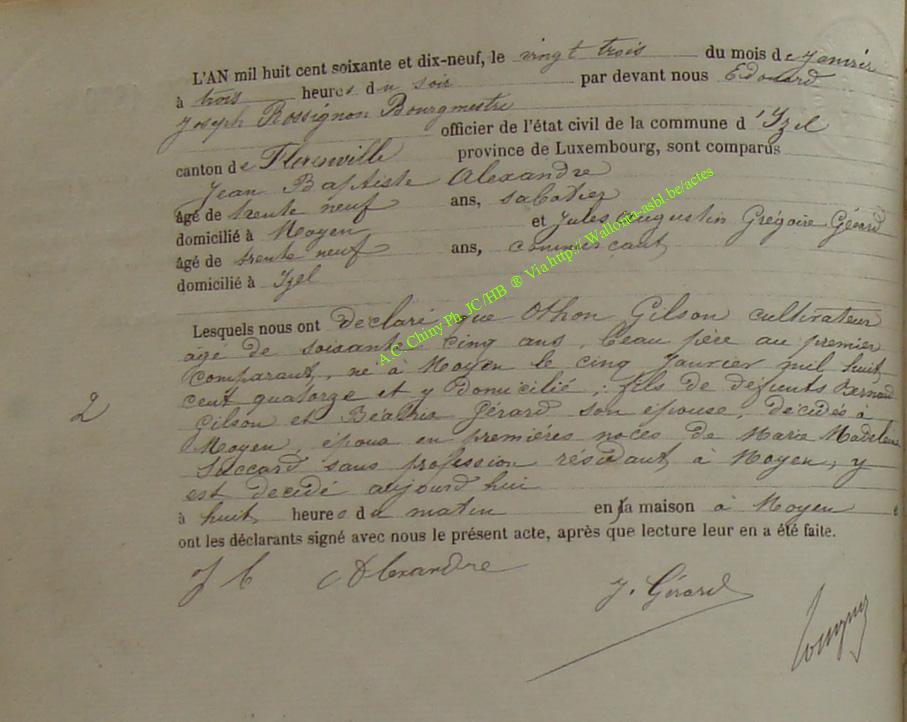 L'AN mil huit cent soixante et dix-neuf, le vingt trois du mois de janvier
à trois heures du soir par devant nous Edouard
Joseph Rossignon Bourgmestre
officier de l'état civil de la commune d'Izel
canton de Florenville province de Luxembourg, sont comparus
Jean Baptiste Alexandre
âgé de trente neuf ans, sabotier
domicilié à Moyen et Jules Augustin Grégoire Gérard
âgé de trente neuf ans, commerçant
domicilié à Izel
Lesquels nous ont déclaré que Othon Gilson cultivateur
agé de soixante cinq ans, beau père au premier
comparant, né à Moyen le cinq Janvier mil huit
cent quatorze et y domicilié ; fils de défunts
Gilson et Béatrix Gérard son épouse, décédés à
Moyen, époux en premières noces de Marie Madeleine
sans profession résidant à Moyen, y
est décédé aujourd'hui
à huit heures du matin en sa maison à Moyen e
ont les déclarants signé avec nous le présent acte, après que lecture leur en a été faite.
2
J B Alexandre
J. Gérard
A.C. Chiny Ph. JC /HB ® Via http:\\ Wallonia-asbl.be/actes